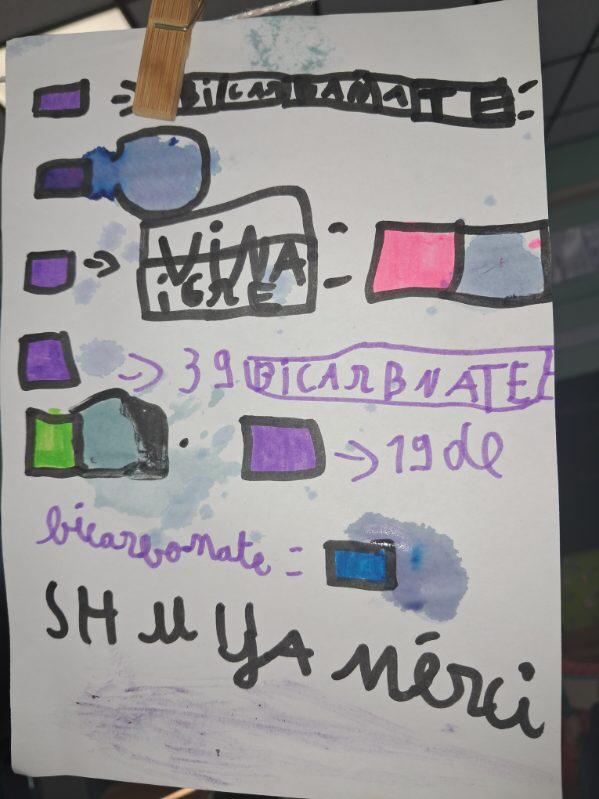 → BICARBANATE =
→ VINAIGRE =
→ 3g BICARBNATE
→ 1g de
bicarbonate =
SHUYA mérci